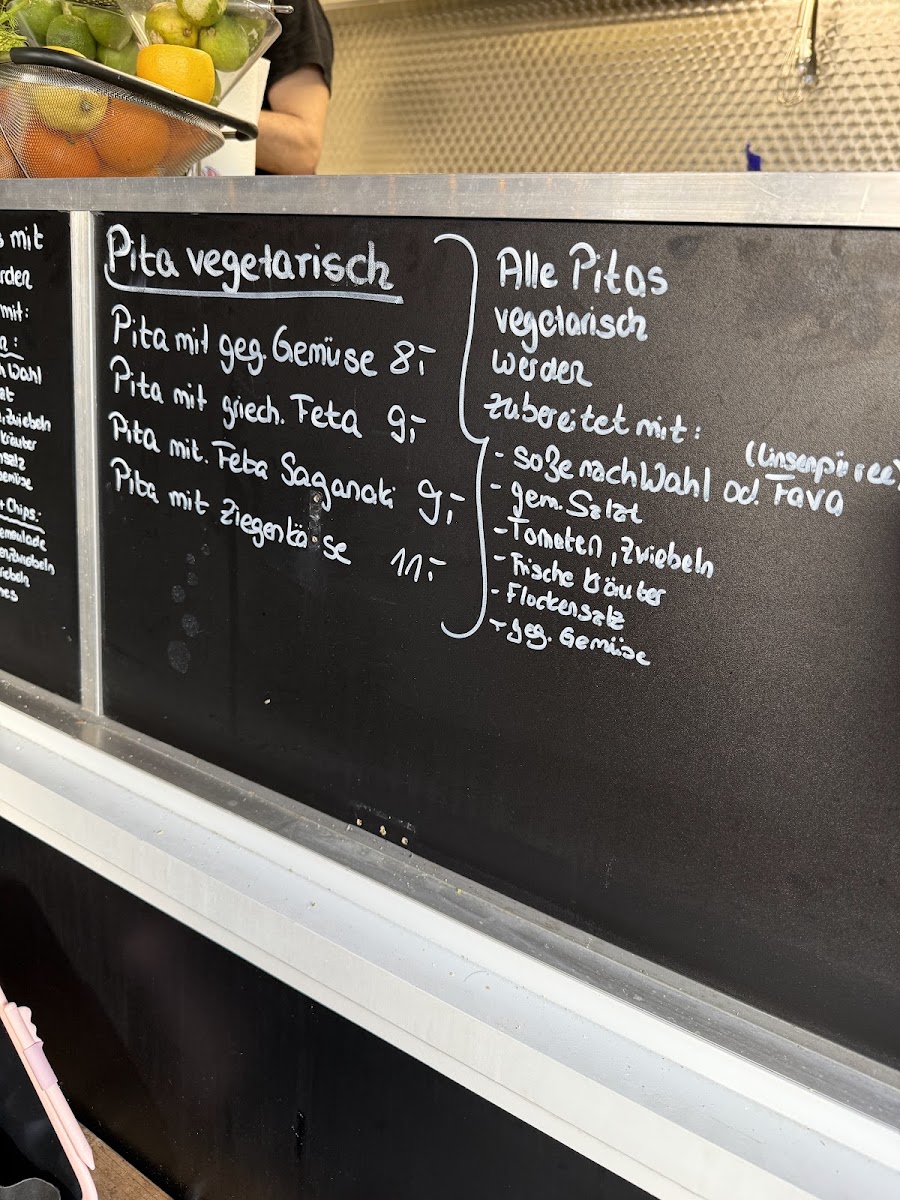 mit
rden
mit:
n:
h Wahl
at
, Zwiebeln
Kräuter
nsalz
emüse
Chips:
emoulade
Zwiebeln
iebeln
nes
Pita vegetarisch
Pita mit geg. Gemüse 8,-
Pita mit griech. Feta 9,-
Pita mit. Feta Saganaki 9,-
Pita mit Ziegenkäse 11,-
Alle Pitas
vegetarisch
werden
zubereitet mit:
(Linsenpüree)
- Soße nach Wahl od Fava
- gem. Salat
- Tomaten, Zwiebeln
- Frische Kräuter
- Flockensalz
- geg. Gemüse